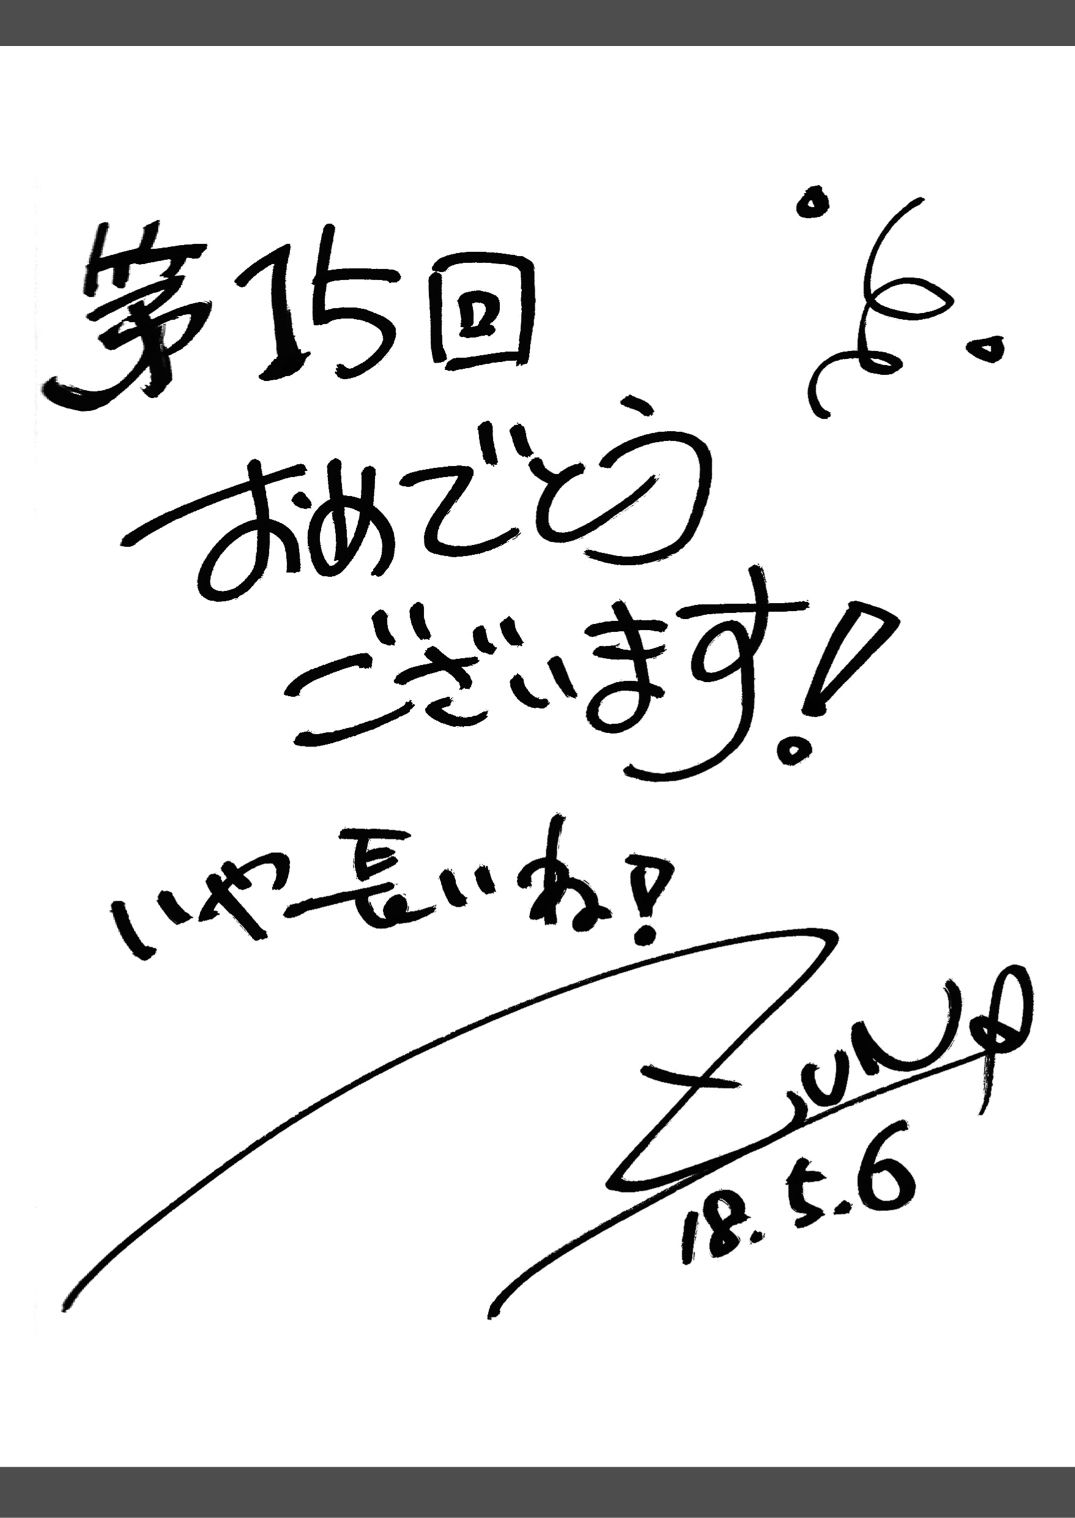 第15回
おめでとう
ございます!
いや長いね!
ZUN
18.5.6